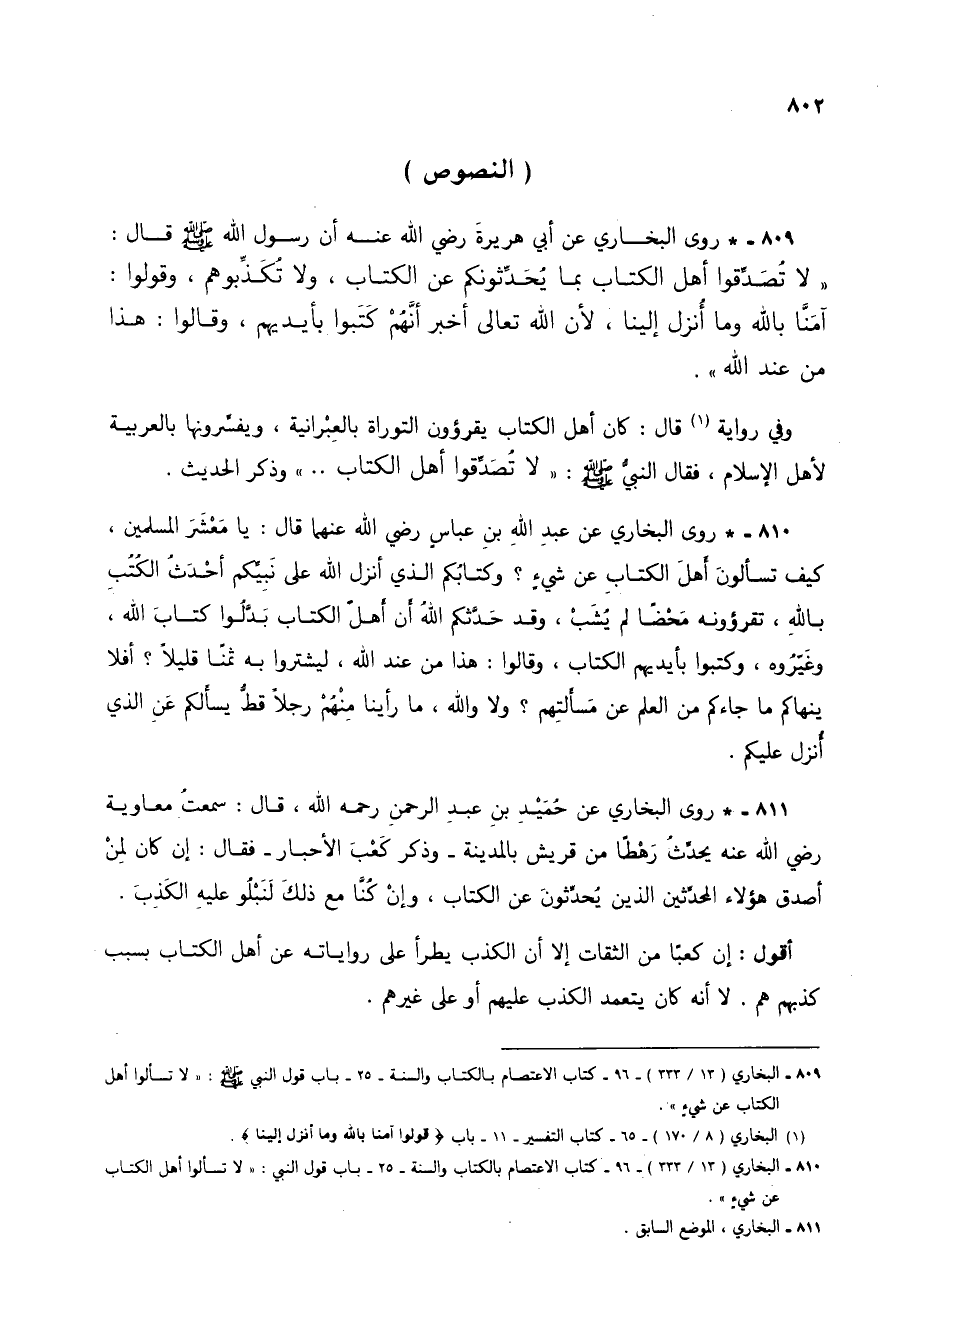 ٨٠٢
( النصوص )
٨٠٩ - * روى البخـــاري عن أبي هريرةَ رضي الله عنـــه أن رســول الله ﷺ قــال :
« لا تُصَـدِّقوا أهل الكتـاب بما يُحَـدِّثونكم عن الكتـاب ، ولا تُكَـذِّبوهم ، وقولوا :
آمَنَّا بالله وما أُنزل إلينا ، لأن الله تعالى أخبر أَنَّهُمْ كَتَبوا بأيـديهم ، وقـالوا : هـذا
من عند الله » .
وفي رواية (١) قال : كان أهل الكتاب يقرؤون التوراة بالعِبْرانية ، ويفسِّرونها بالعربيـة
لأهل الإسلام ، فقال النبيُّ ﷺ : « لا تُصَدِّقوا أهل الكتاب .. » وذكر الحديث .
٨١٠ - * روى البخاري عن عبدِ الله بنِ عباسٍ رضي الله عنهما قال : يا مَعْشَرَ المسلمين ،
كيف تسـألونَ أَهلَ الكتـاب عن شيءٍ ؟ وكتابُكم الـذي أنزل الله على نَبيِّكم أحْـدَثُ الكُتُبِ
بـاللهِ ، تقرؤونـه مَحْضًـا لم يُشَبْ ، وقـد حَدَّثكم اللهُ أن أهـلَ الكتـاب بَدَّلُـوا كتـابَ الله ،
وغَيَّرُوه ، وكتبوا بأيديهم الكتاب ، وقالوا : هذا من عند الله ، ليشتروا بـه ثمنًـا قليلاً ؟ أفلا
ينهاكم ما جاءكم من العلم عن مَسألتِهم ؟ ولا والله ، ما رأينا مِنْهُمْ رجلاً قطُّ يسألكم عَنِ الذي
أُنزل عليكم .
٨١١ - * روى البخاري عن حُمَيْـدِ بنِ عبـدِ الرحمنِ رحمـه الله ، قـال : سمعتُ معـاويـة
رضي الله عنه يحدِّثُ رَهْطًا من قريش بالمدينة - وذكر كَعْبَ الأحبـار - فقـال : إن كان لمِنْ
أصدق هؤلاء المحدِّثين الذين يُحدِّثونَ عن الكتاب ، وإنْ كُنَّا مع ذلكَ لَنَبْلُو عليهِ الكَذِبَ .
أقول : إن كعبًا من الثقات إلا أن الكذب يطرأ على رواياتـه عن أهل الكتـاب بسبب
كذبهم هم . لا أنه كان يتعمد الكذب عليهم أو على غيرهم .
٨٠٩ - البخاري ( ١٣ / ٣٣٣ ) - ٩٦ - كتاب الاعتصام بـالكتاب والسنة - ٢٥ - بـاب قول النبي ﷺ : « لا تسـألوا أهل
الكتاب عن شيءٍ » .
(١) البخاري ( ٨ / ١٧٠ ) - ٦٥ - كتاب التفسير - ١١ - باب ﴿ قولوا آمنا بالله وما أنزل إلينا ﴾ .
٨١٠ - البخاري ( ١٣ / ٣٣٣ ) - ٩٦ - كتاب الاعتصام بالكتاب والسنة - ٢٥ - بـاب قول النبي : « لا تسألوا أهل الكتـاب
عن شيءٍ » .
٨١١ - البخاري ، الموضع السابق .